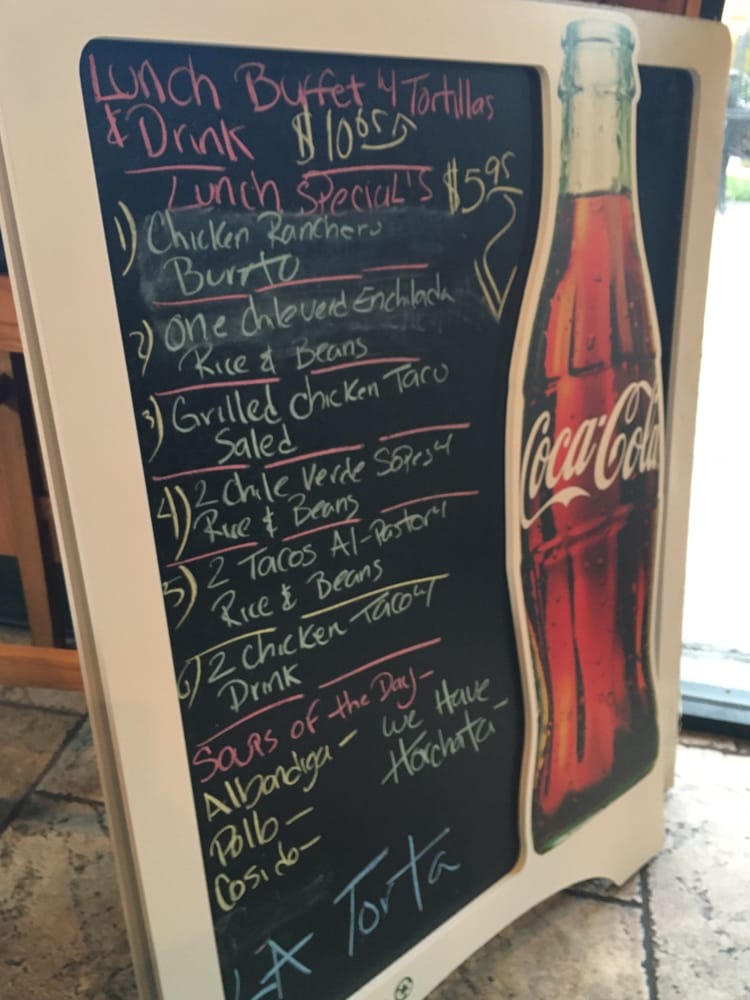 Lunch Buffet w/ Tortillas
& Drink $10.65
Lunch Special's $5.95
1) Chicken Ranchero
Burrto
2) One chileverd Enchilada
Rice & Beans
3) Grilled Chicken Taco
Saled
4) 2 Chile Verde Sopes w/
Rice & Beans
5) 2 Tacos Al-Pastor w/
Rice & Beans
6) 2 Chicken Taco w/
Drink
Soups of the Day-
Albondiga - We Have
Pollo - Horchata-
Cosido-
LA Torta
Coca-Cola